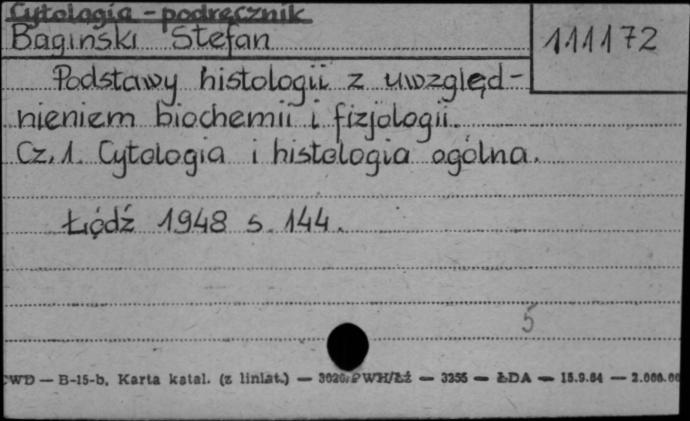 Cytologia - podręcznik
Bagiński Stefan
111172
Podstawy histologii z uwzględ-
nieniem biochemii i fizjologii.
Cz. 1. Cytologia i histologia ogólna.
Łódź 1948 s. 144.
5
CWD — B-15-b, Karta katal. (z liniat.) — 3020/PWH/Łź — 3255 — ŁDA — 15.9.64 — 2.000.00